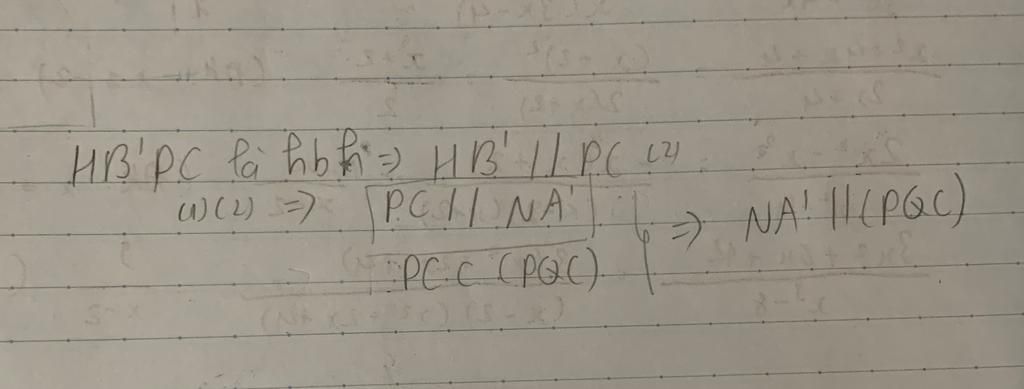 HB'PC là hbh => HB' // PC (2)
(1)(2) => PC // NA'
PC ⊂ (PQC)
=> NA' // (PQC)